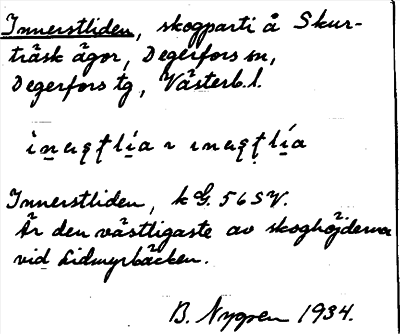 Innerstliden, skogparti å Skur-
träsk ägor, Degerfors sn,
Degerfors tg, Västerb. l.
Innerstliden, k G. 56 SV.
Är den västligaste av skoghöjderna
vid Lidmyrbäcken.
B. Nygren 1934.